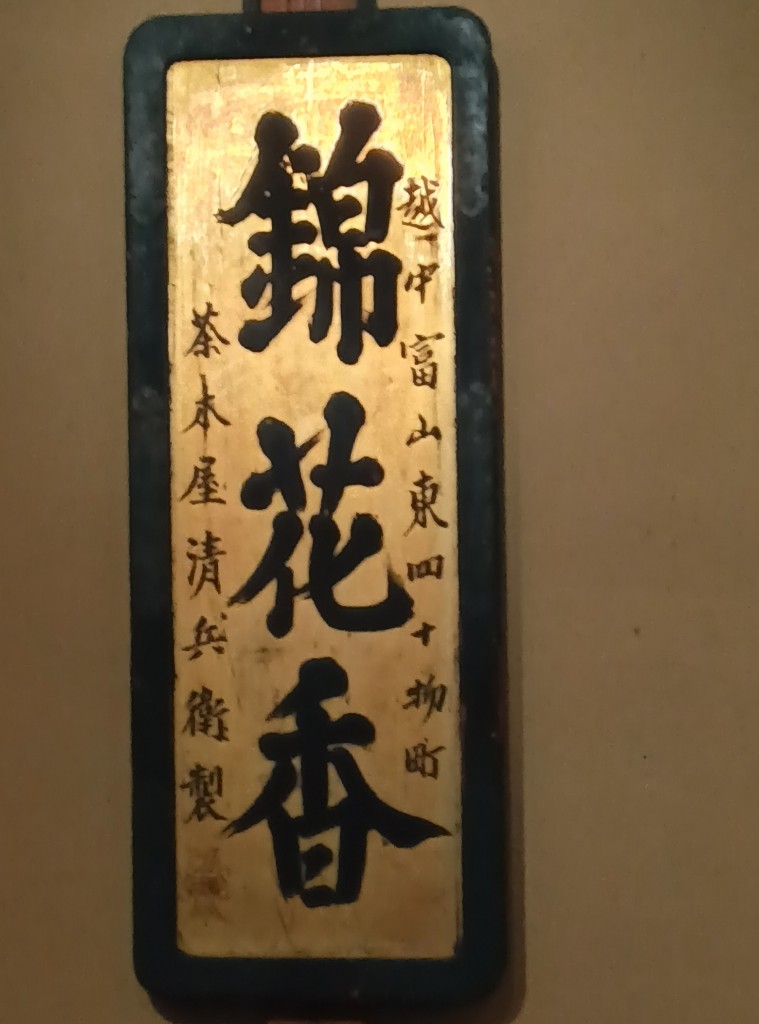 越中富山東四十物町
錦花香
茶木屋清兵衛製